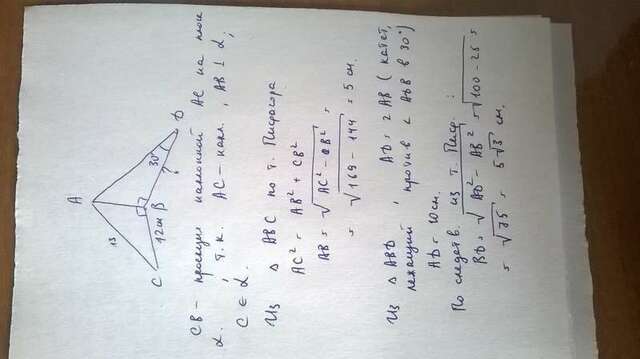 A
13
12 см
30°
?
C
B
D
CB - проекция наклонной AC на плос
α. , т.к. AC - накл. , AB ⊥ α,
C ∈ α.
Из △ ABC по т. Пифагора
AC² = AB² + CB²
AB = √AC² - CB² =
= √169 - 144 = 5 см.
Из △ ABD , AD = 2 AB ( катет,
лежащий против ∠ ADB в 30°)
AD = 10 см.
По следств. из т. Пиф. :
BD = √AD² - AB² = √100 - 25 =
= √75 = 5√3 см.